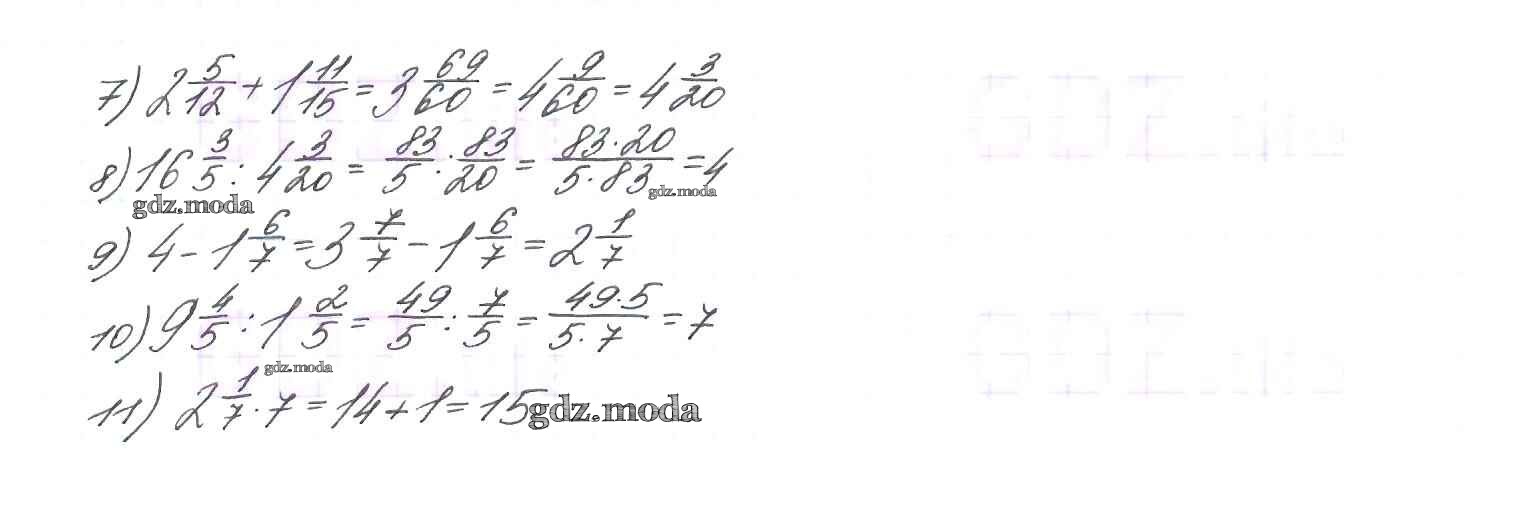 7) 2 5/12 + 1 11/15 = 3 69/60 = 4 9/60 = 4 3/20
8) 16 3/5 : 4 3/20 = 83/5 : 83/20 = 83·20/5·83 = 4
gdz.moda
gdz.moda
9) 4 - 1 6/7 = 3 7/7 - 1 6/7 = 2 1/7
10) 9 4/5 : 1 2/5 = 49/5 : 7/5 = 49·5/5·7 = 7
gdz.moda
11) 2 1/7 · 7 = 14 + 1 = 15
gdz.moda